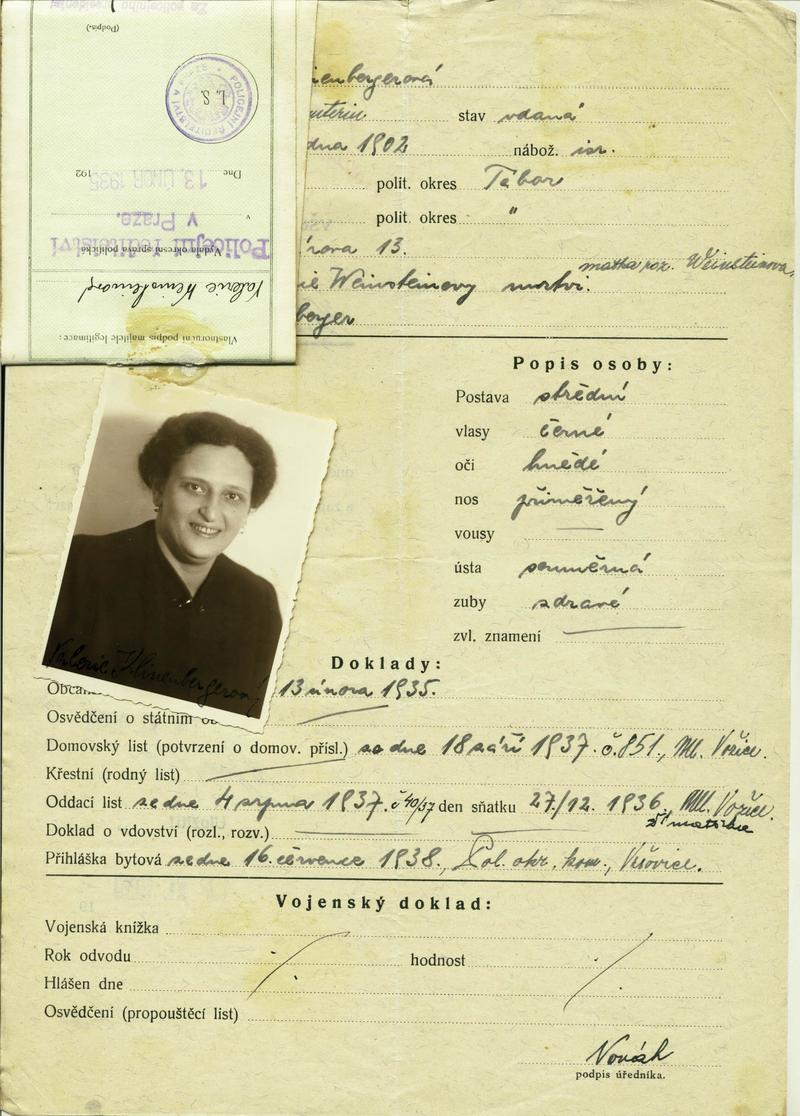 Za policejního presidenta
(Podpis.)
POLICEJNÍ ŘEDITELSTVÍ V PRAZE
L. S.
Dne 13. ÚNOR 1935 192
v
Policejní ředitelství
v Praze.
Vydala okresní správa politická
Valerie Weinsteinová
Vlastnoruční podpis majitele legitimace:
enbergerová
stav vdaná
dna 1902 nábož. isr.
polit. okres Tábor
polit. okres "
rova 13.
matka roz. Weinsteinova,
ie Weinsteinovy mrtvi.
berger
Popis osoby:
Postava střední
vlasy černé
oči hnědé
nos přiměřený
vousy
ústa souměrná
zuby zdravé
zvl. znamení
Valerie Klinenbergerová
Doklady:
Občan 13 února 1935.
Osvědčení o státním
Domovský list (potvrzení o domov. přísl.) ze dne 18 září 1937. č. 851., Ml. Vožice.
Křestní (rodný list)
Oddací list ze dne 4 srpna 1937. č 40/37 den sňatku 27/12. 1936. Ml. Vožice.
Doklad o vdovství (rozl., rozv.)
Přihláška bytová ze dne 16. července 1938., Pol. okr. kom., Vršovice.
Vojenský doklad:
Vojenská knížka
Rok odvodu hodnost
Hlášen dne
Osvědčení (propouštěcí list)
Novák
podpis úředníka.